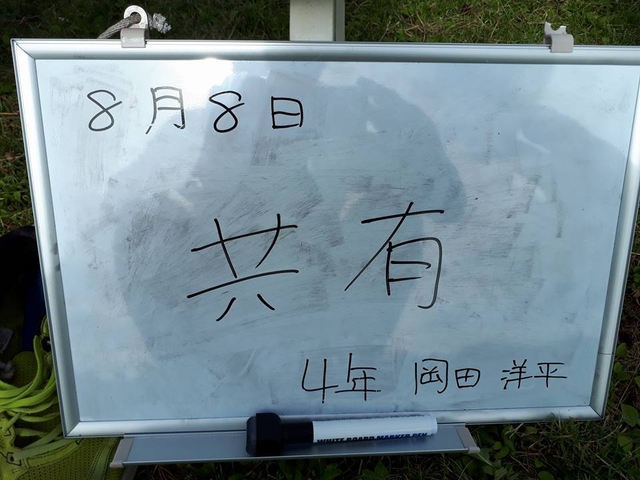 8月8日
共有
4年 岡田 洋平
WHITE BOARD MARKER PEN